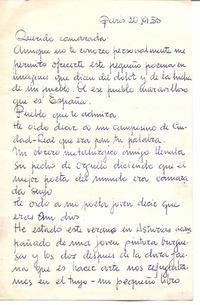 París 20 XI 53
Querido camarada.
Aunque no te conozco personalmente me
permito ofrecerte este pequeño poema en
imagenes que dicen del dolor y de la lucha
de mi pueblo. De ese pueblo maravilloso
que es España.
Pueblo que te admira.
He oido decir a un campesino de Ciu-
dad-Real que era pan tu palabra.
Un obrero metalurgico amigo llenaba
su pecho de orgullo diciendo que el
mejor poeta del mundo era camara
da suyo
He oido a un poeta joven decir que
eras un dios
He estado este verano en Asturias acom
pañado de una joven pintora burgue
sa y los dos despues de la dura fae-
na que es hacer arte nos refugiaba
mos en el tuyo - un pequeño libro